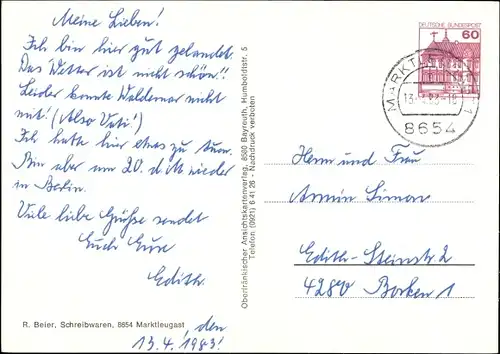 Meine Lieben!
Ich bin hier gut gelandet.
Das Wetter ist nicht schön!!
Leider konnte Waldemar nicht
mit! (Also Vati!)
Ich hatte hier etwas zu tun.
Bin aber am 20. d M wieder
in Berlin.
Viele liebe Grüße sendet
Euch Eure
Edith.
R. Beier, Schreibwaren, 8654 Marktleugast, den
13.4.1983!
Oberfränkischer Ansichtskartenverlag, 8580 Bayreuth, Humboldtstr. 5
Telefon (0921) 6 41 26 - Nachdruck verboten
DEUTSCHE BUNDESPOST
60
8654
Herrn und Frau
Armin Simon
Edith-Steinstr 2
4280 Borken 1